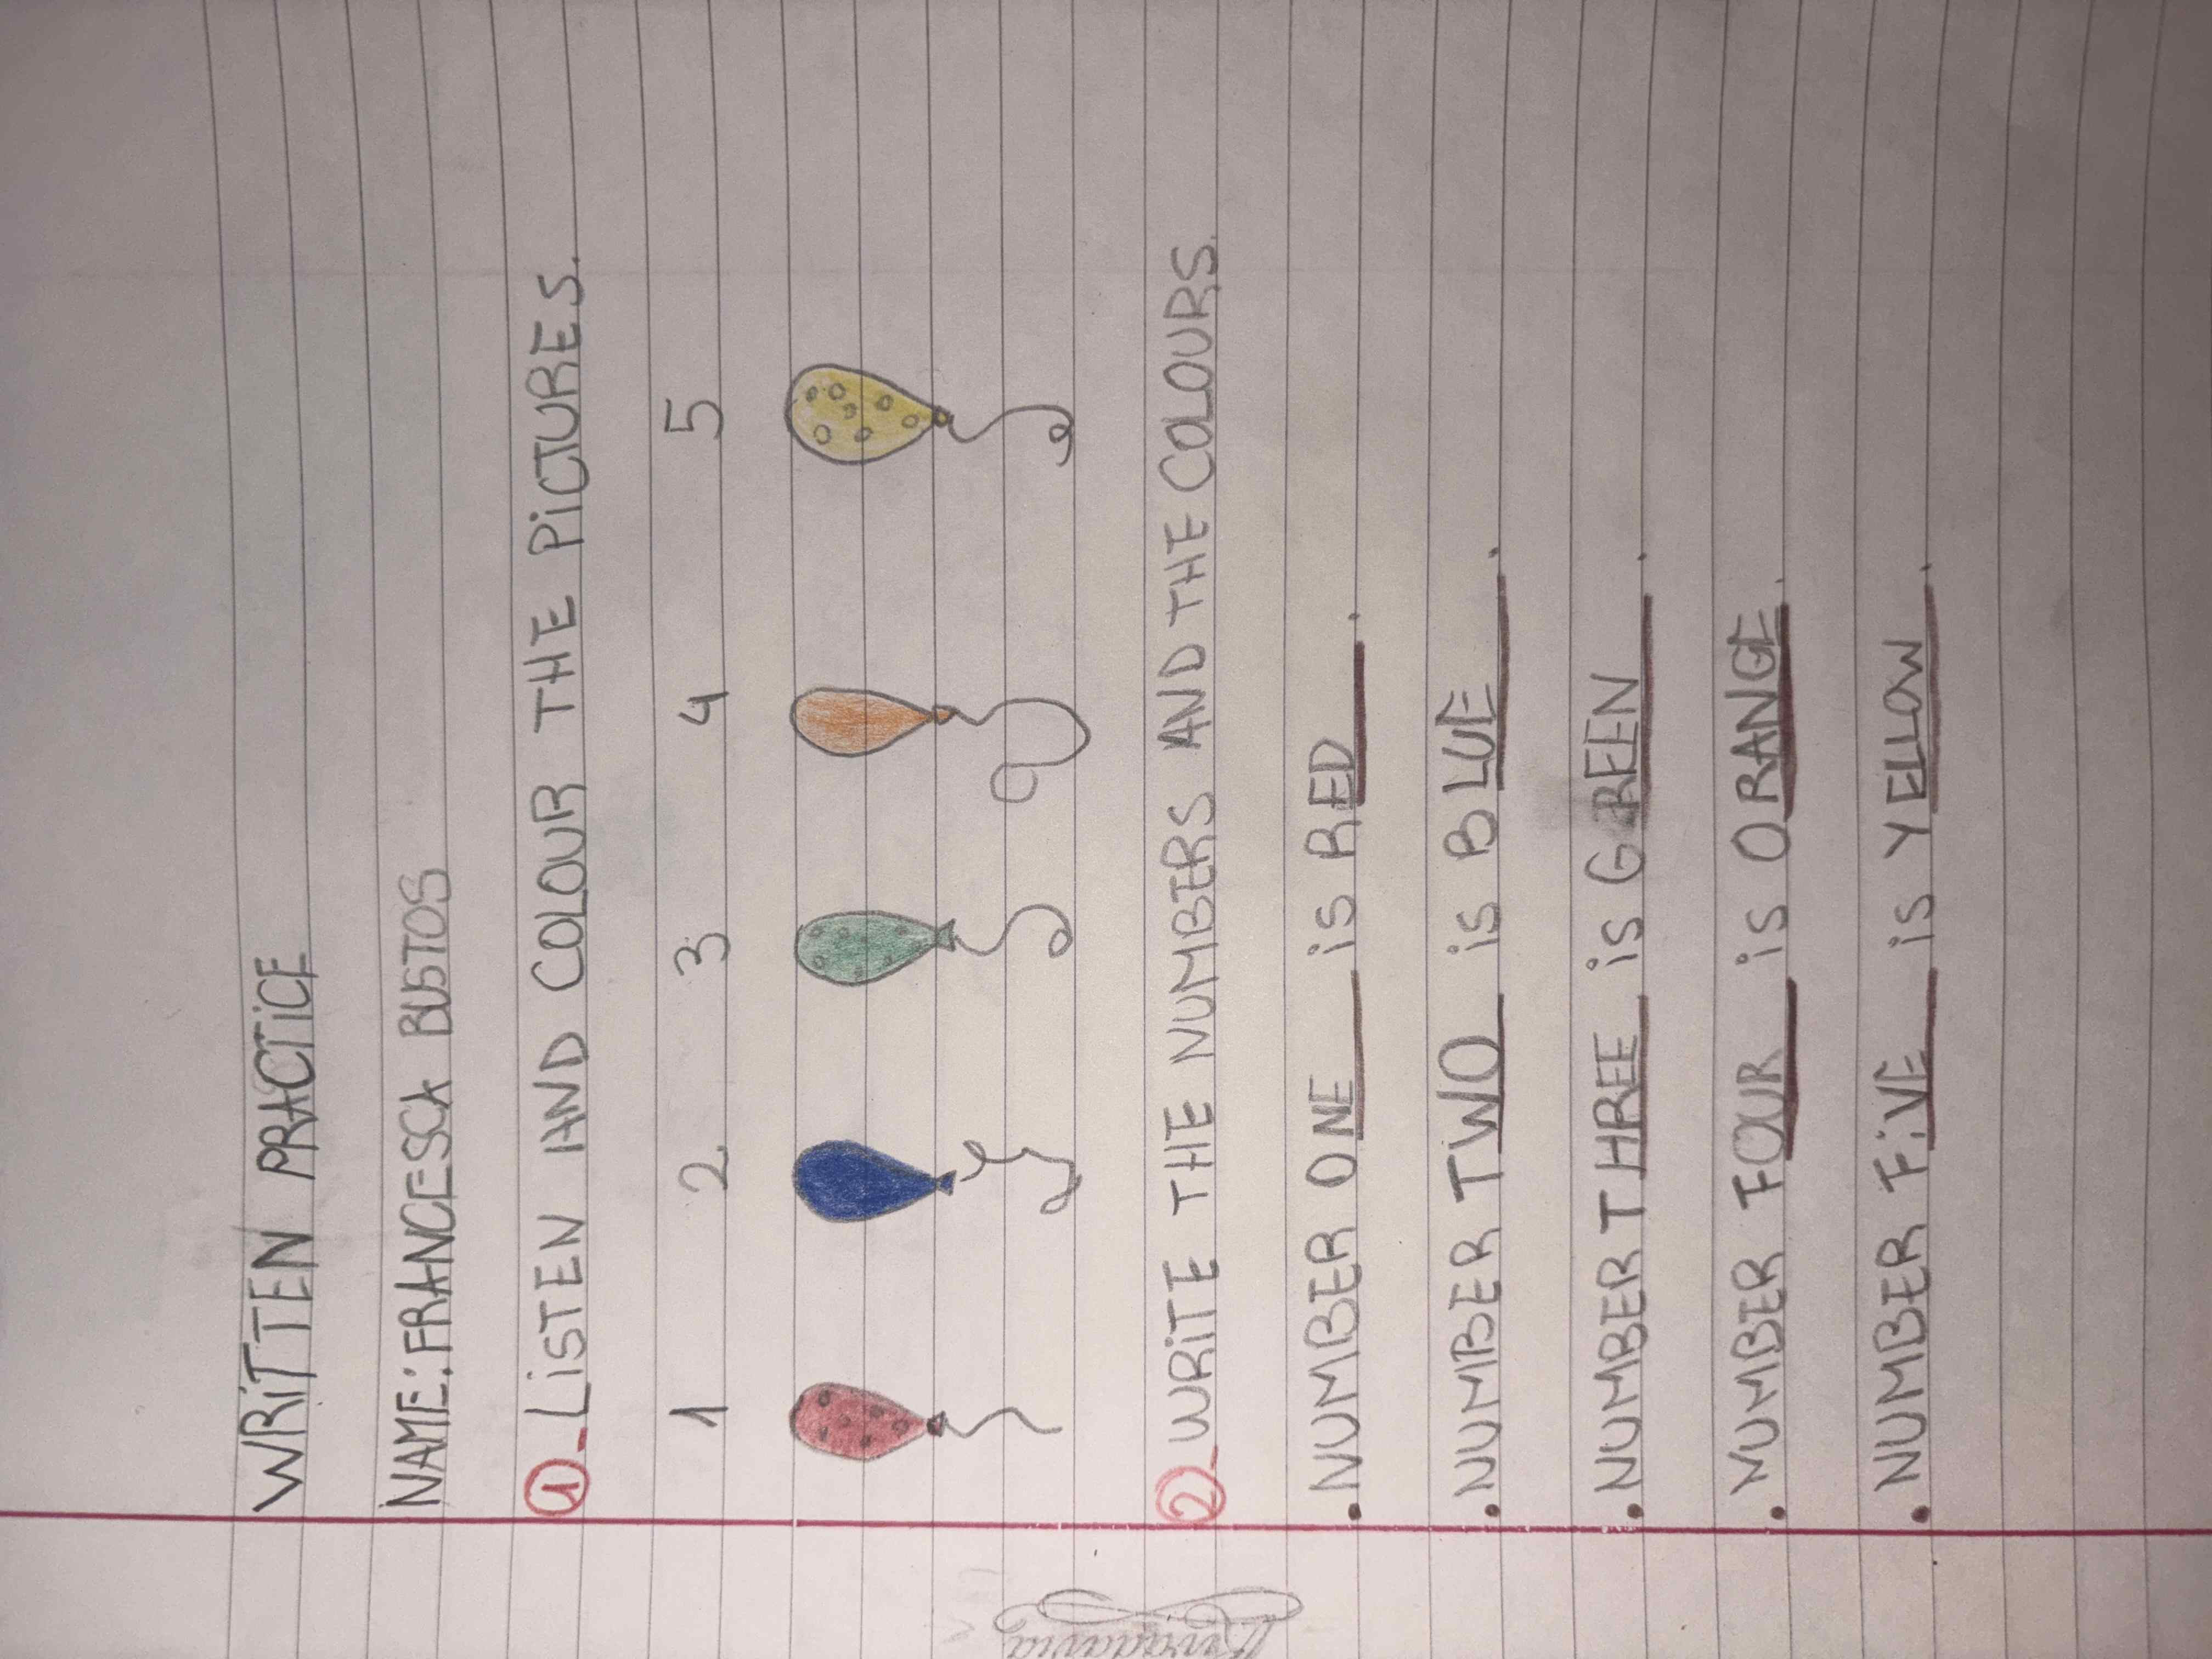 WRITTEN PRACTICE
NAME: FRANCESCA BUSTOS
1_ LISTEN AND COLOUR THE PICTURES.
1 2 3 4 5
2_ WRITE THE NUMBERS AND THE COLOURS.
• NUMBER ONE is RED.
• NUMBER TWO is BLUE.
• NUMBER THREE is GREEN.
• NUMBER FOUR is ORANGE.
• NUMBER FiVE is YELLOW.
Rivadavia